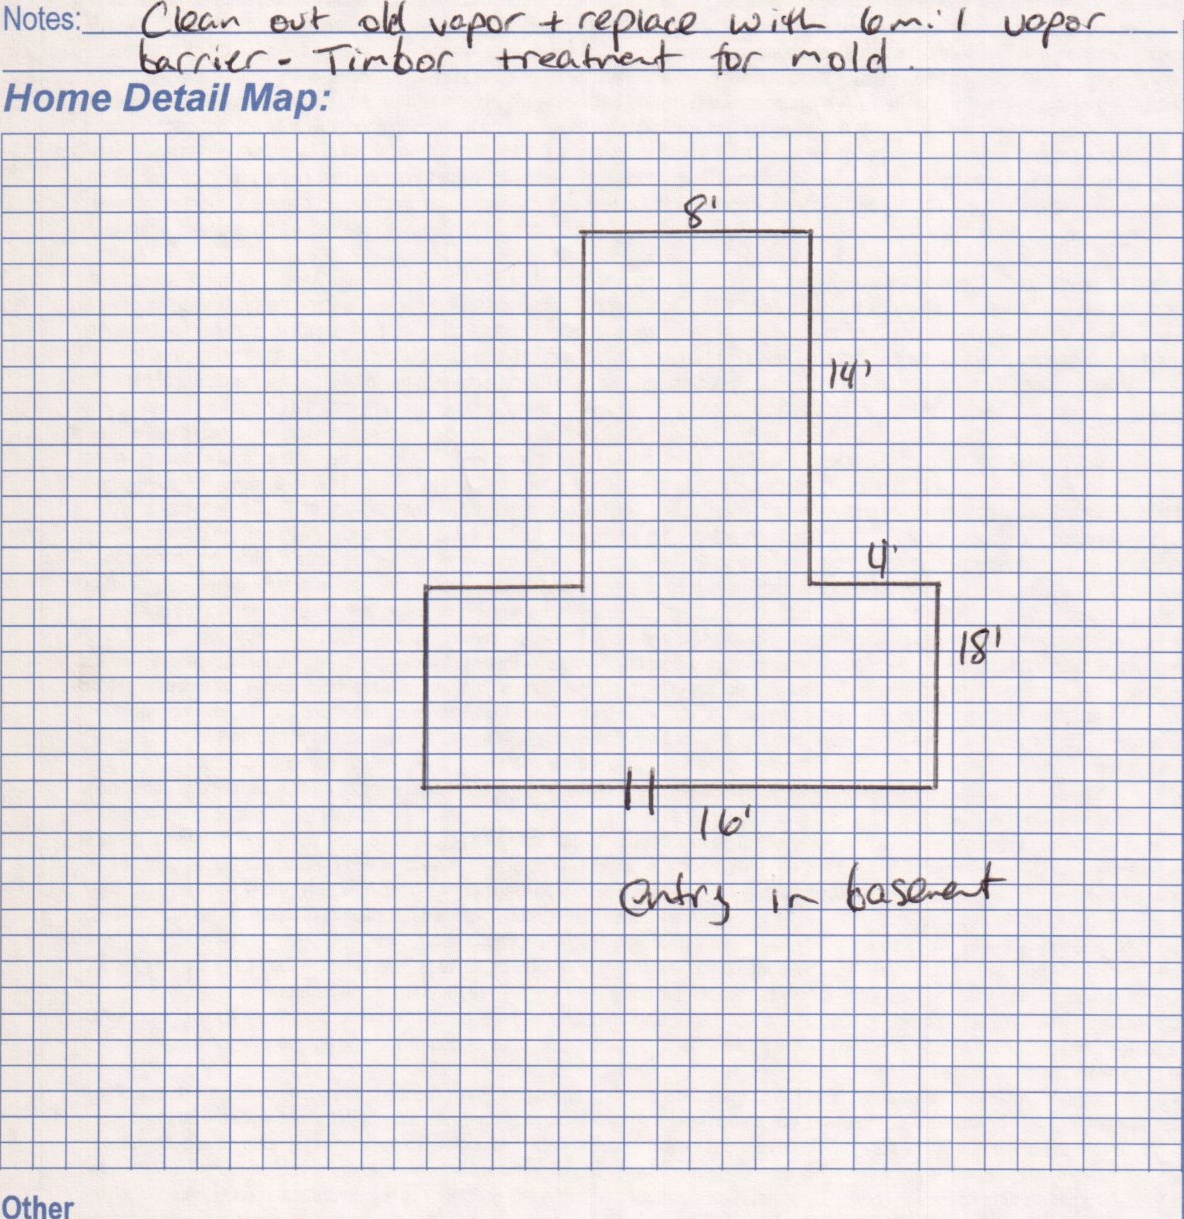 Notes: Clean out old vapor + replace with 6mil vapor
barrier - Timbor treatment for mold.
Home Detail Map:
8'
14'
4'
18'
16'
entry in basement
Other